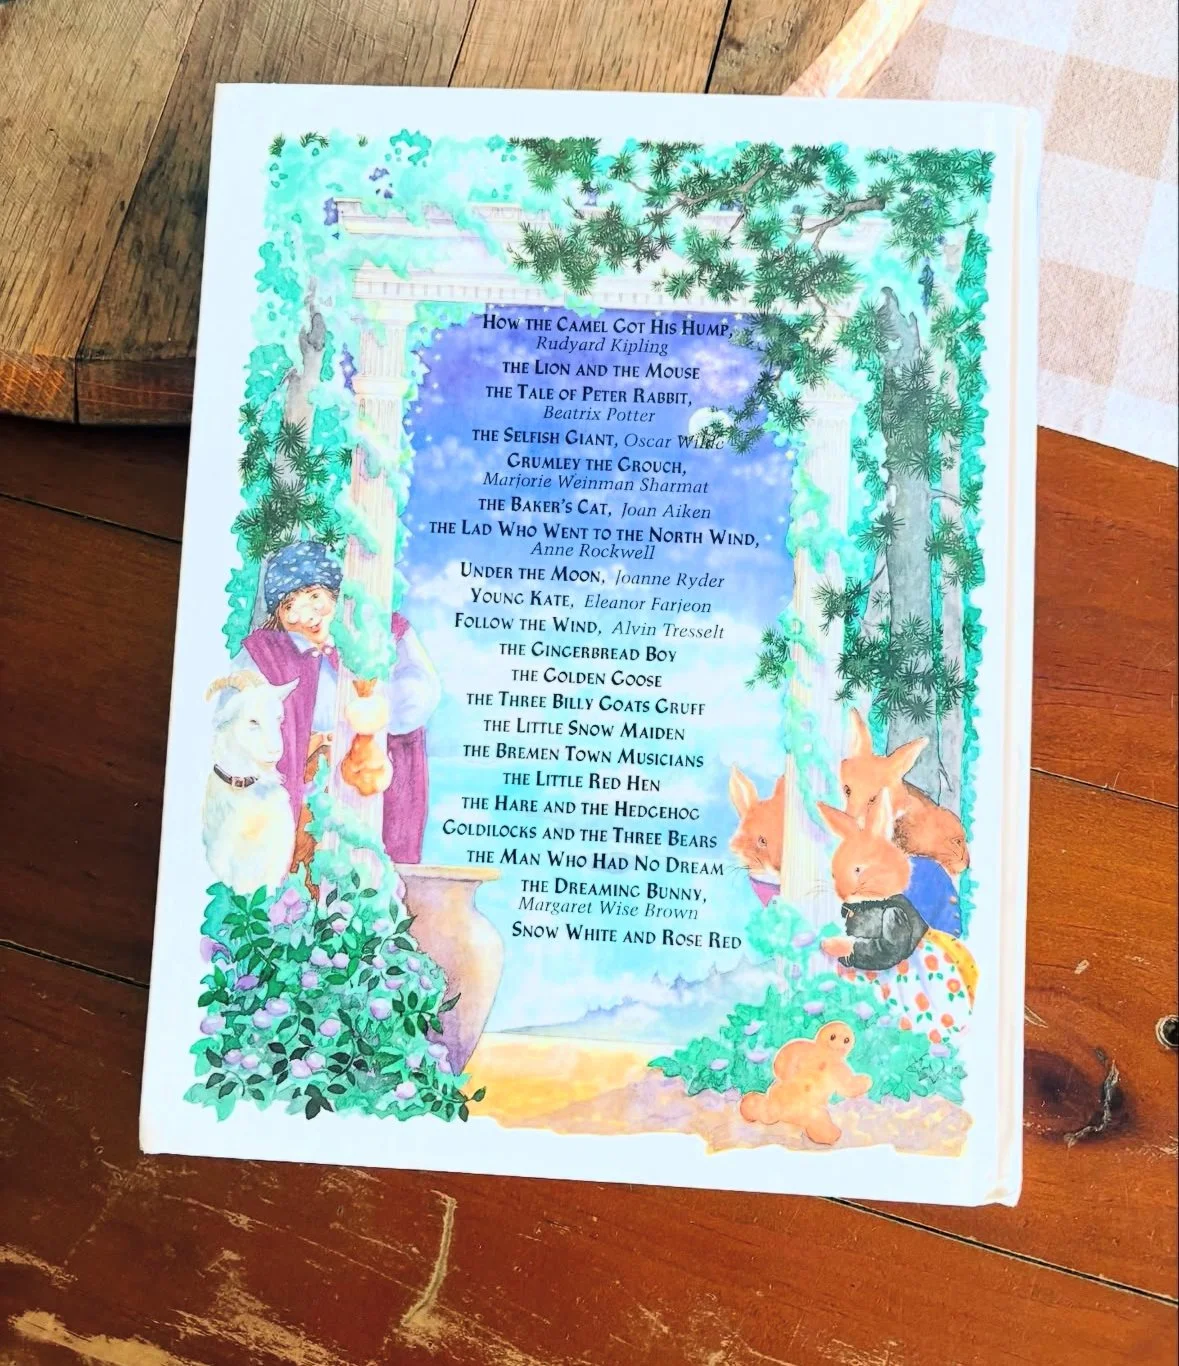 HOW THE CAMEL GOT HIS HUMP,
Rudyard Kipling
THE LION AND THE MOUSE
THE TALE OF PETER RABBIT,
Beatrix Potter
THE SELFISH GIANT, Oscar Wilde
GRUMLEY THE GROUCH,
Marjorie Weinman Sharmat
THE BAKER'S CAT, Joan Aiken
THE LAD WHO WENT TO THE NORTH WIND,
Anne Rockwell
UNDER THE MOON, Joanne Ryder
YOUNG KATE, Eleanor Farjeon
FOLLOW THE WIND, Alvin Tresselt
THE GINGERBREAD BOY
THE GOLDEN GOOSE
THE THREE BILLY GOATS GRUFF
THE LITTLE SNOW MAIDEN
THE BREMEN TOWN MUSICIANS
THE LITTLE RED HEN
THE HARE AND THE HEDGEHOG
GOLDILOCKS AND THE THREE BEARS
THE MAN WHO HAD NO DREAM
THE DREAMING BUNNY,
Margaret Wise Brown
SNOW WHITE AND ROSE RED